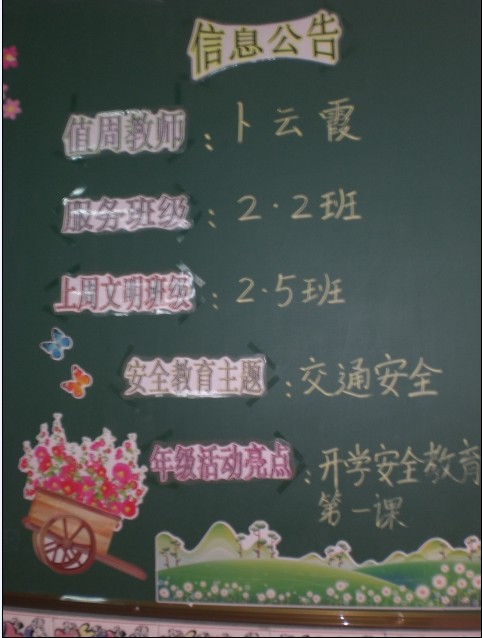 信息公告
值周教师：卜云霞
服务班级：2·2班
上周文明班级：2·5班
安全教育主题：交通安全
年级活动亮点：开学安全教育
第一课